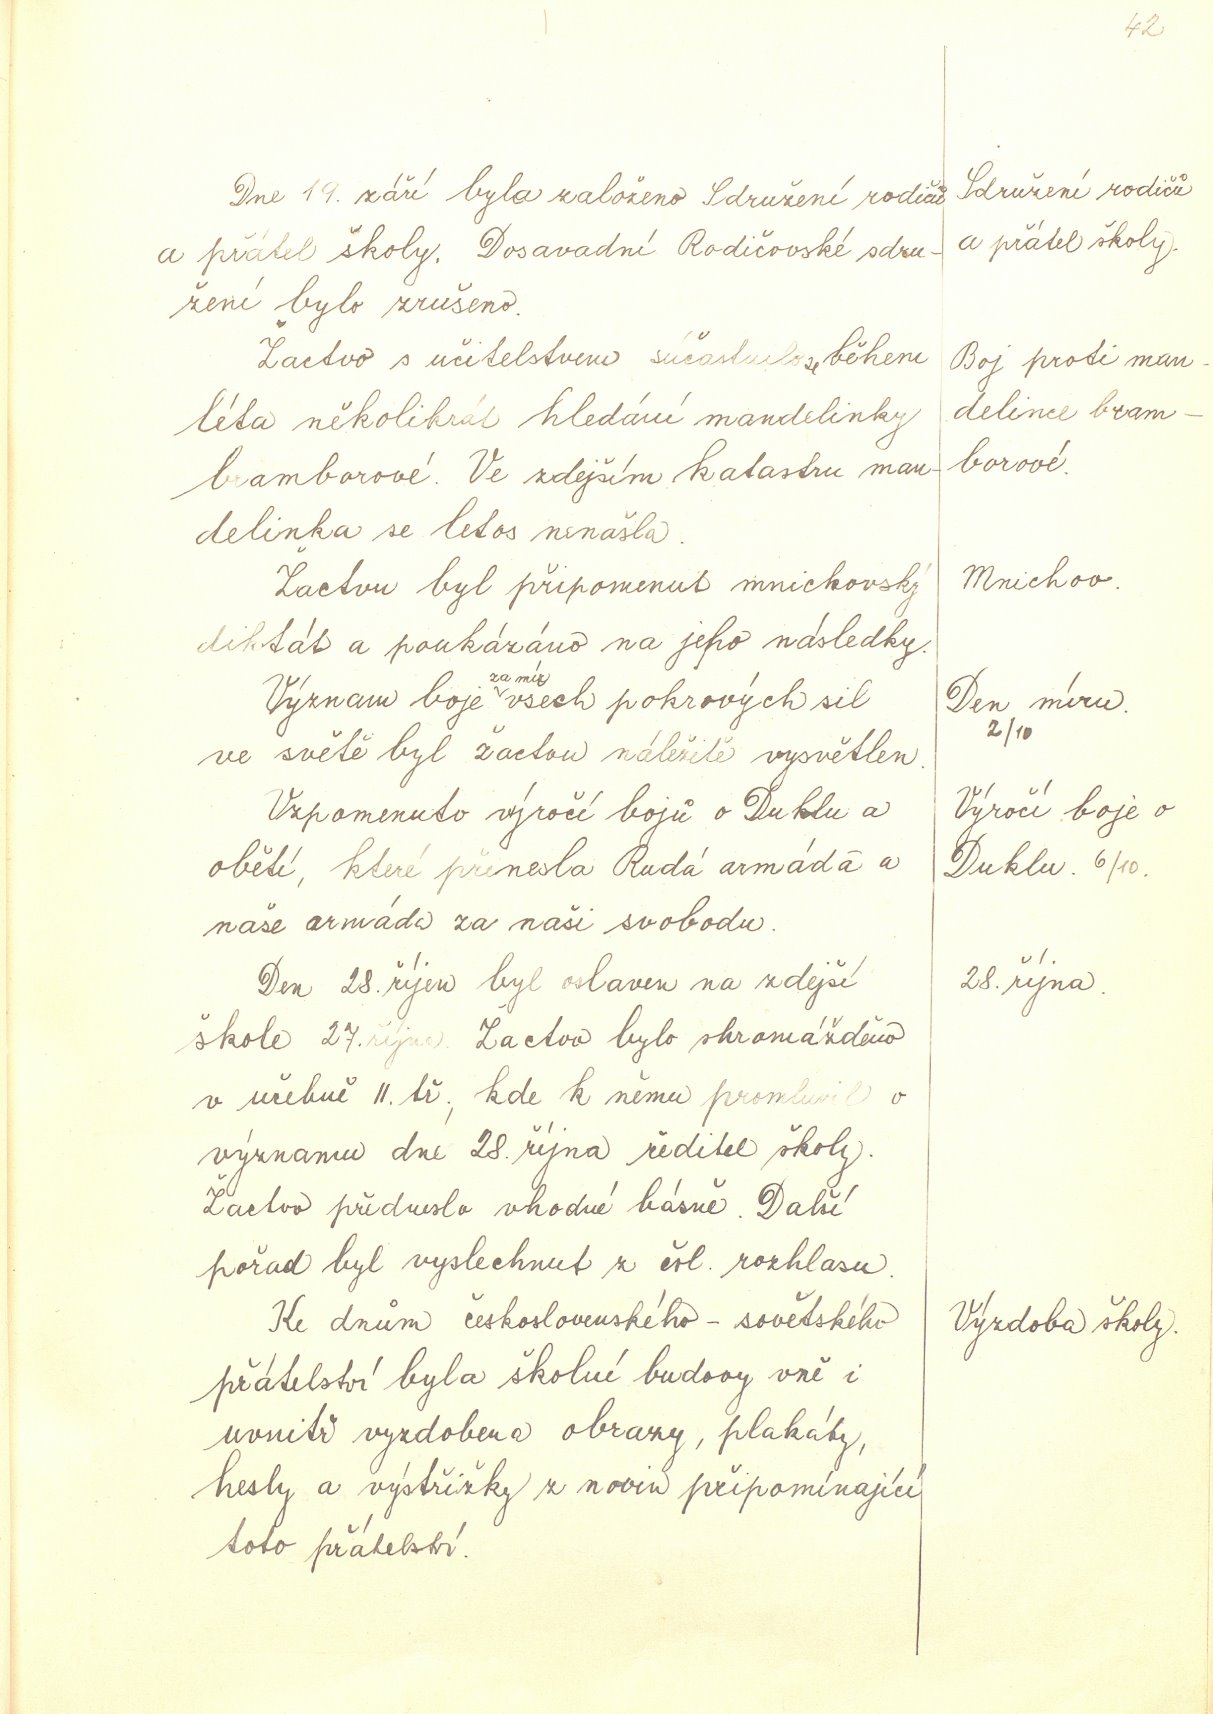 42
Dne 19. září byla založeno Sdružení rodičů
a přátel školy. Dosavadní Rodičovské sdru-
žení bylo zrušeno.
Sdružení rodičů
a přátel školy.
Žactvo s učitelstvem súčastnilo se během
léta několikrát hledání mandelinky
bramborové. Ve zdejším katastru man-
delinka se letos nenašla.
Boj proti man-
delince bram-
borové.
Žactvu byl připomenut mnichovský
diktát a poukázáno na jeho následky.
Mnichov.
Význam boje za mír všech pokrových sil
ve světě byl žactvu náležitě vysvětlen.
Den míru.
2/10
Vzpomenuto výročí bojů o Duklu a
obětí, které přinesla Rudá armáda a
naše armáda za naši svobodu.
Výročí boje o
Duklu. 6/10.
Den 28. říjen byl oslaven na zdejší
škole 27. října. Žactvo bylo shromážděno
v učebně II. tř., kde k němu promluvil o
významu dne 28. října ředitel školy.
Žactvo předneslo vhodné básně. Další
pořad byl vyslechnut z čsl. rozhlasu.
28. října.
Ke dnům československého - sovětského
přátelství byla školní budovy vně i
uvnitř vyzdobena obrazy, plakáty,
hesly a výstřižky z novin připomínající
toto přátelství.
Výzdoba školy.